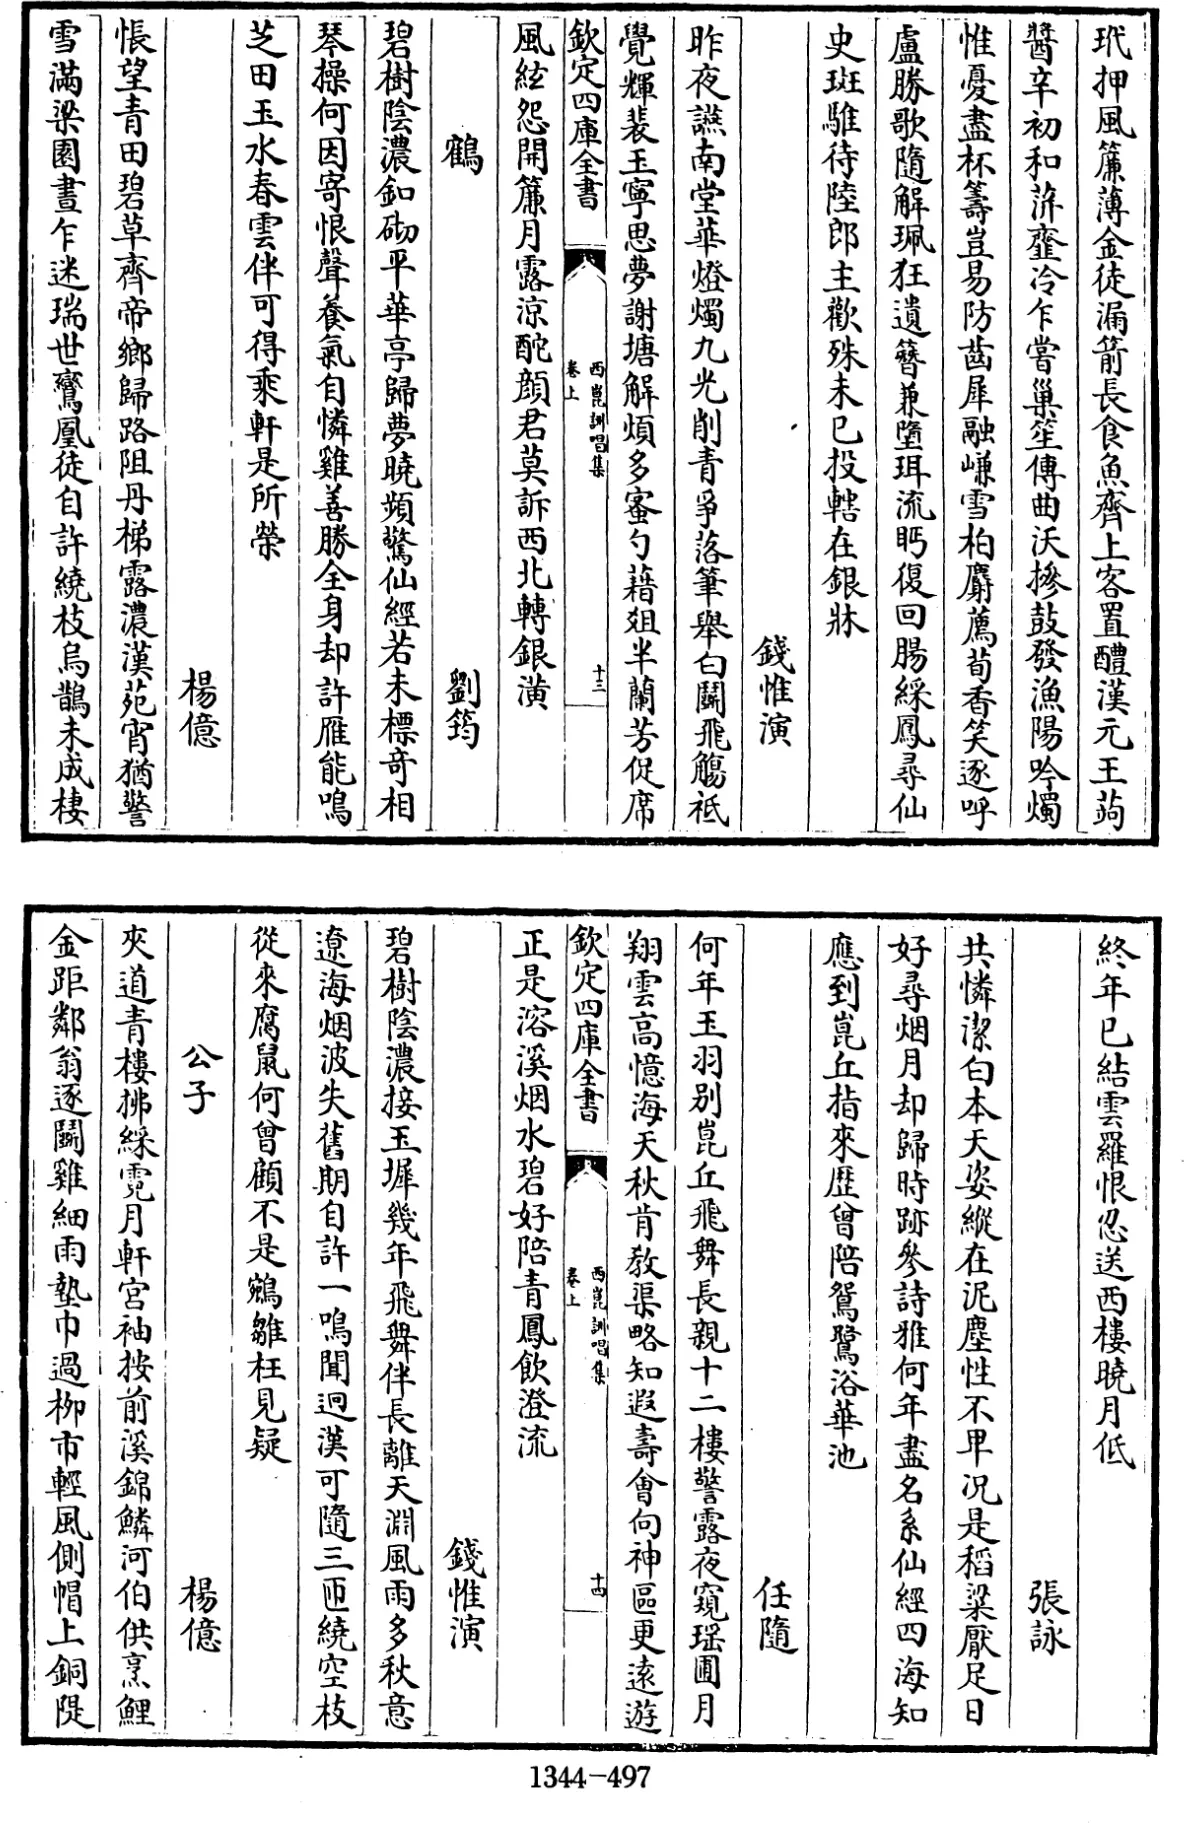 玳押風簾薄金徒漏箭長食魚齊上客置醴漢元王蒟
醬辛初和蓱虀冷乍嘗巢笙傳曲沃摻鼓發漁陽吟燭
惟憂盡杯籌豈易防齒犀融嵰雪柏麝薦荀香笑逐呼
盧勝歌隨解珮狂遺簪兼墮珥流眄復回腸綵鳳尋仙
史斑騅待陸郎主歡殊未已投轄在銀牀
錢惟演
昨夜讌南堂華燈燭九光削青爭落筆舉白鬭飛觴袛
覺輝裴玉寧思夢謝塘解煩多蜜勺藉爼半蘭芳促席
欽定四庫全書
西崑詶唱集
卷上
十三
風絃怨開簾月露涼酡顔君莫訴西北轉銀潢
鶴
劉筠
碧樹陰濃釦砌平華亭歸夢曉頻驚仙經若未標奇相
琴操何因寄恨聲養氣自憐雞善勝全身却許雁能鳴
芝田玉水春雲伴可得乘軒是所榮
楊億
悵望青田碧草齊帝鄉歸路阻丹梯露濃漢苑宵猶警
雪滿梁園晝乍迷瑞世鸞凰徒自許繞枝烏鵲未成棲
終年已結雲羅恨忍送西樓曉月低
張詠
共憐潔白本天姿縱在泥塵性不卑况是稻粱厭足日
好尋烟月却歸時跡參詩雅何年盡名系仙經四海知
應到崑丘指來歷曾陪鴛鷺浴華池
任隨
何年玉羽别崑丘飛舞長親十二樓警露夜窺瑶圃月
翔雲高憶海天秋肯教渠略知遐壽會向神區更遠遊
欽定四庫全書
西崑詶唱集
卷上
十四
正是溶溪烟水碧好陪青鳳飲澄流
錢惟演
碧樹陰濃接玉墀幾年飛舞伴長離天淵風雨多秋意
遼海烟波失舊期自許一鳴聞迥漢可隨三匝繞空枝
從來腐鼠何曾顧不是鵷雛枉見疑
公子
楊億
夾道青樓拂綵霓月軒宮袖按前溪錦鱗河伯供烹鯉
金距鄰翁逐鬭雞細雨墊巾過柳市輕風側帽上銅隄
1344-497